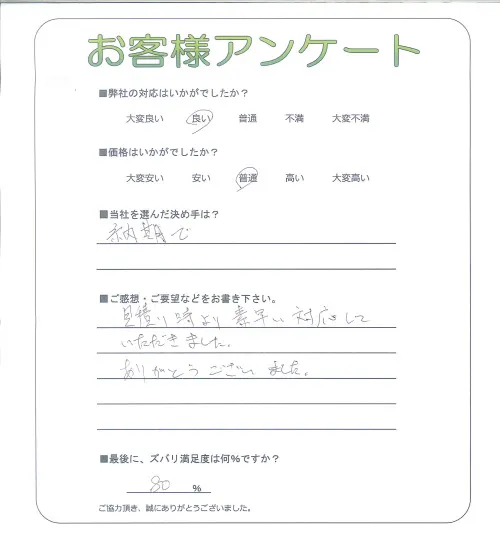 お客様アンケート
■弊社の対応はいかがでしたか？
大変良い 良い 普通 不満 大変不満
■価格はいかがでしたか？
大変安い 安い 普通 高い 大変高い
■当社を選んだ決め手は？
納期で
■ご感想・ご要望などをお書き下さい。
見積り時より素早い対応して
いただきました。
ありがとうございました。
■最後に、ズバリ満足度は何%ですか？
80 %
ご協力頂き、誠にありがとうございました。